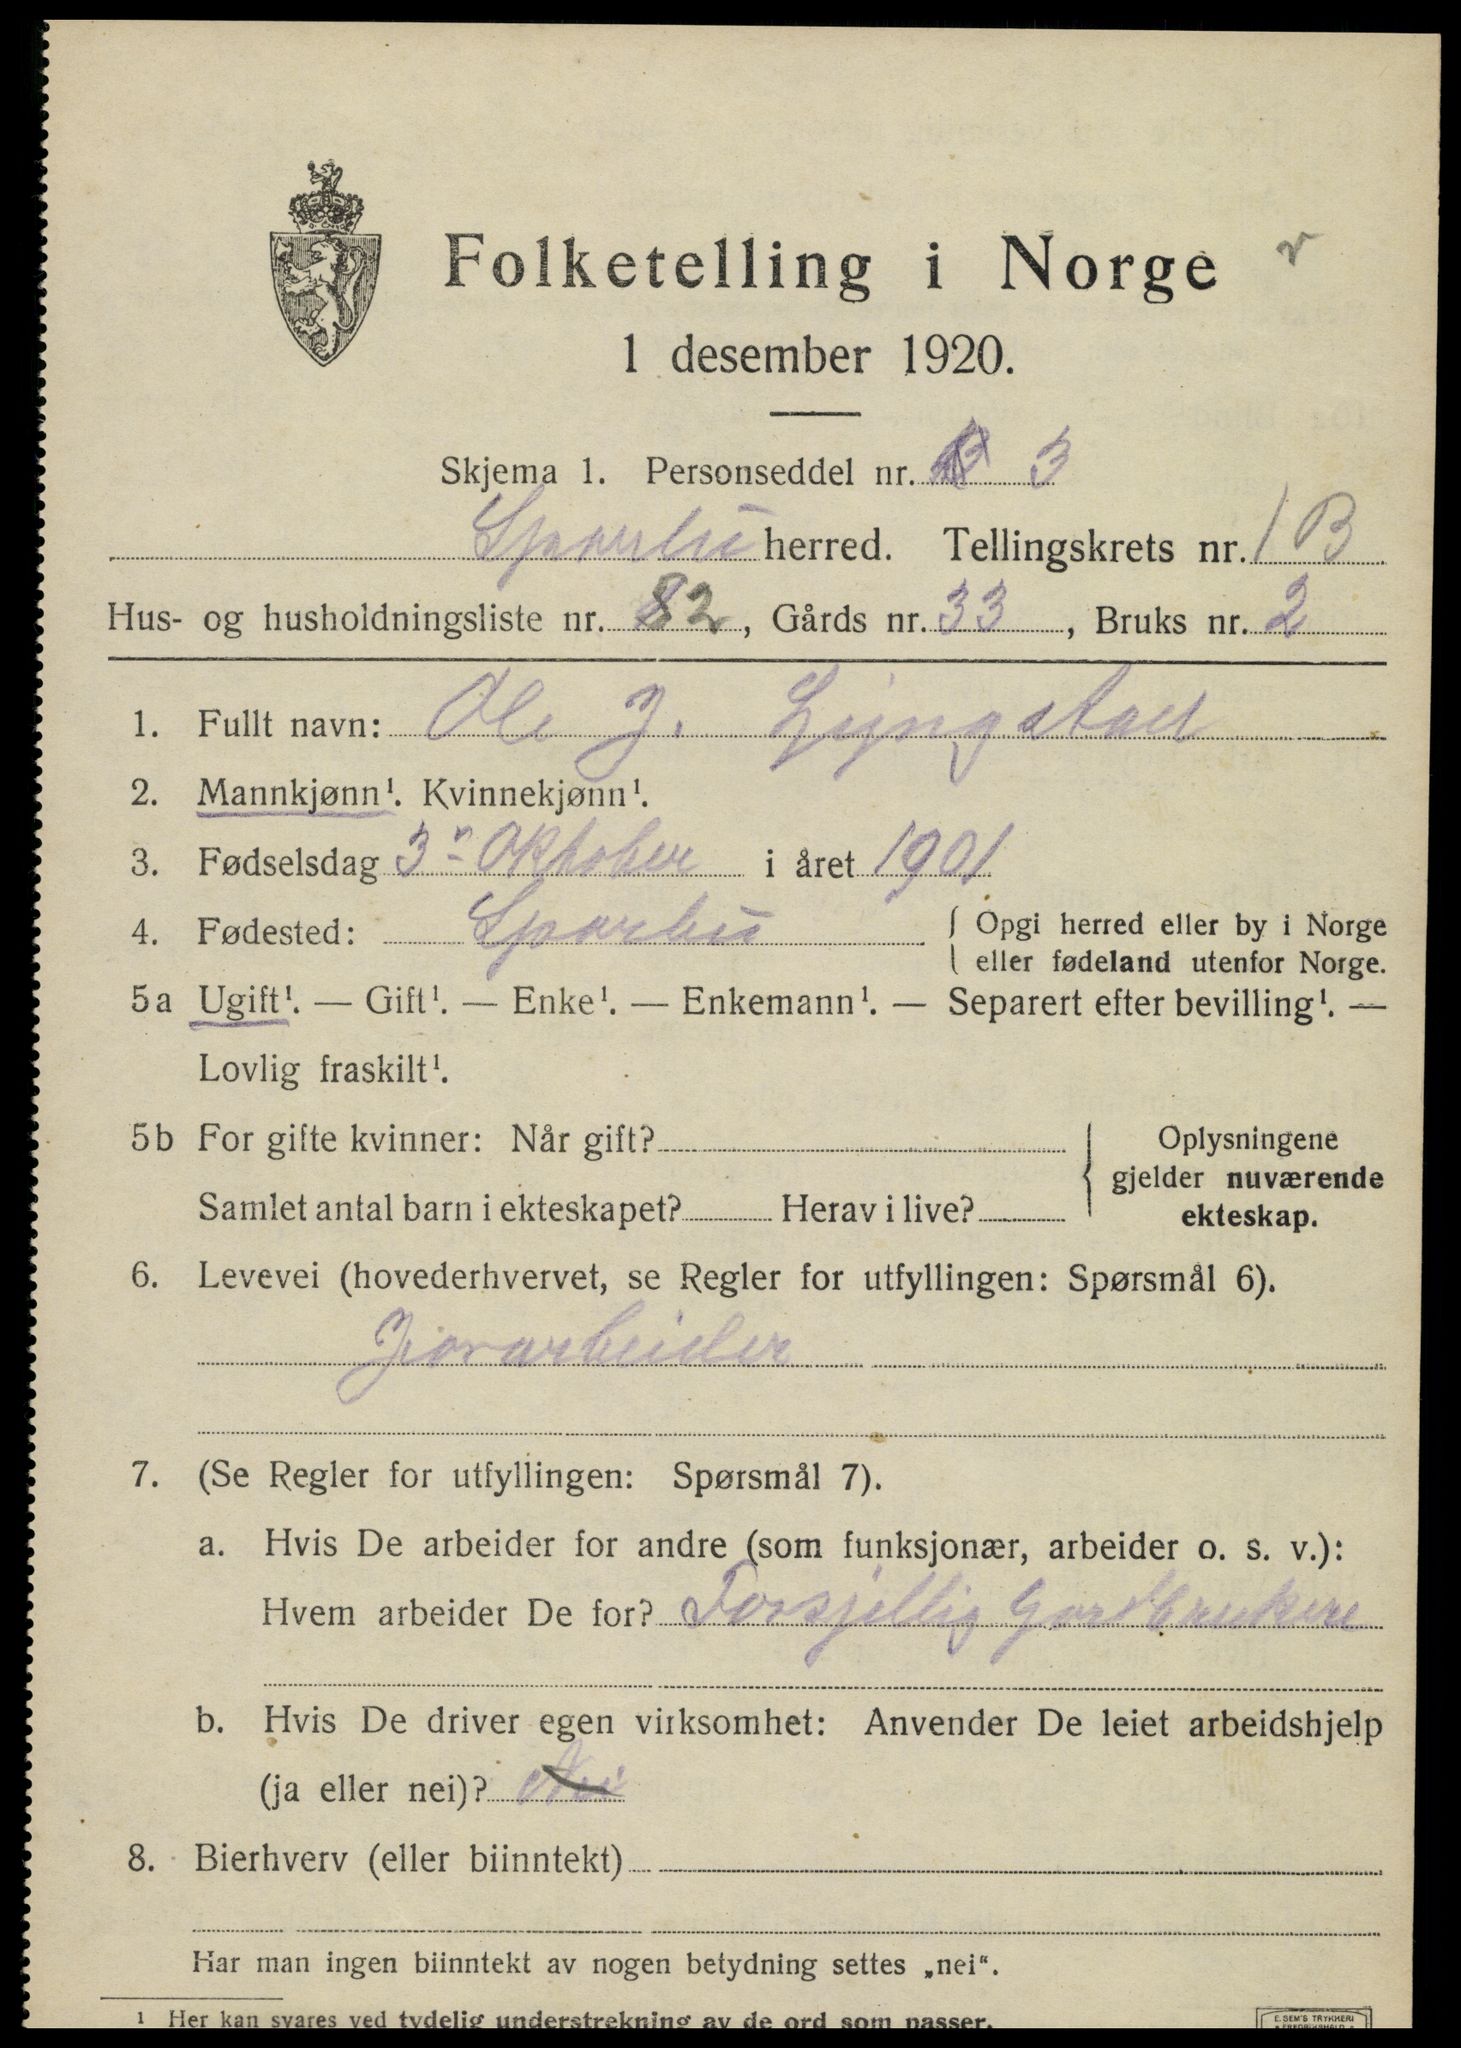 Folketelling i Norge
1 desember 1920.
Skjema 1. Personseddel nr. 3
Sparbu herred. Tellingskrets nr. 1 B
Hus- og husholdningsliste nr. 82, Gårds nr. 33, Bruks nr. 2
1. Fullt navn: Ole J. Lyngstad
2. Mannkjønn¹. Kvinnekjønn¹.
3. Fødselsdag 3 Oktober i året 1901
4. Fødested: Sparbu { Opgi herred eller by i Norge
eller fødeland utenfor Norge.
5a Ugift¹. — Gift¹. — Enke¹. — Enkemann¹. — Separert efter bevilling¹. —
Lovlig fraskilt¹.
5b For gifte kvinner: Når gift? { Oplysningene
gjelder nuværende
Samlet antal barn i ekteskapet? Herav i live? ekteskap.
6. Levevei (hovederhvervet, se Regler for utfyllingen: Spørsmål 6).
Jorarbeider
7. (Se Regler for utfyllingen: Spørsmål 7).
a. Hvis De arbeider for andre (som funksjonær, arbeider o. s. v.):
Hvem arbeider De for? Forsjellig Gardbrukere
b. Hvis De driver egen virksomhet: Anvender De leiet arbeidshjelp
(ja eller nei)? Nei
8. Bierhverv (eller biinntekt)
Har man ingen biinntekt av nogen betydning settes „nei“.
¹ Her kan svares ved tydelig understrekning av de ord som passer.
E. SEM'S TRYKKERI
FREDRIKSHALD